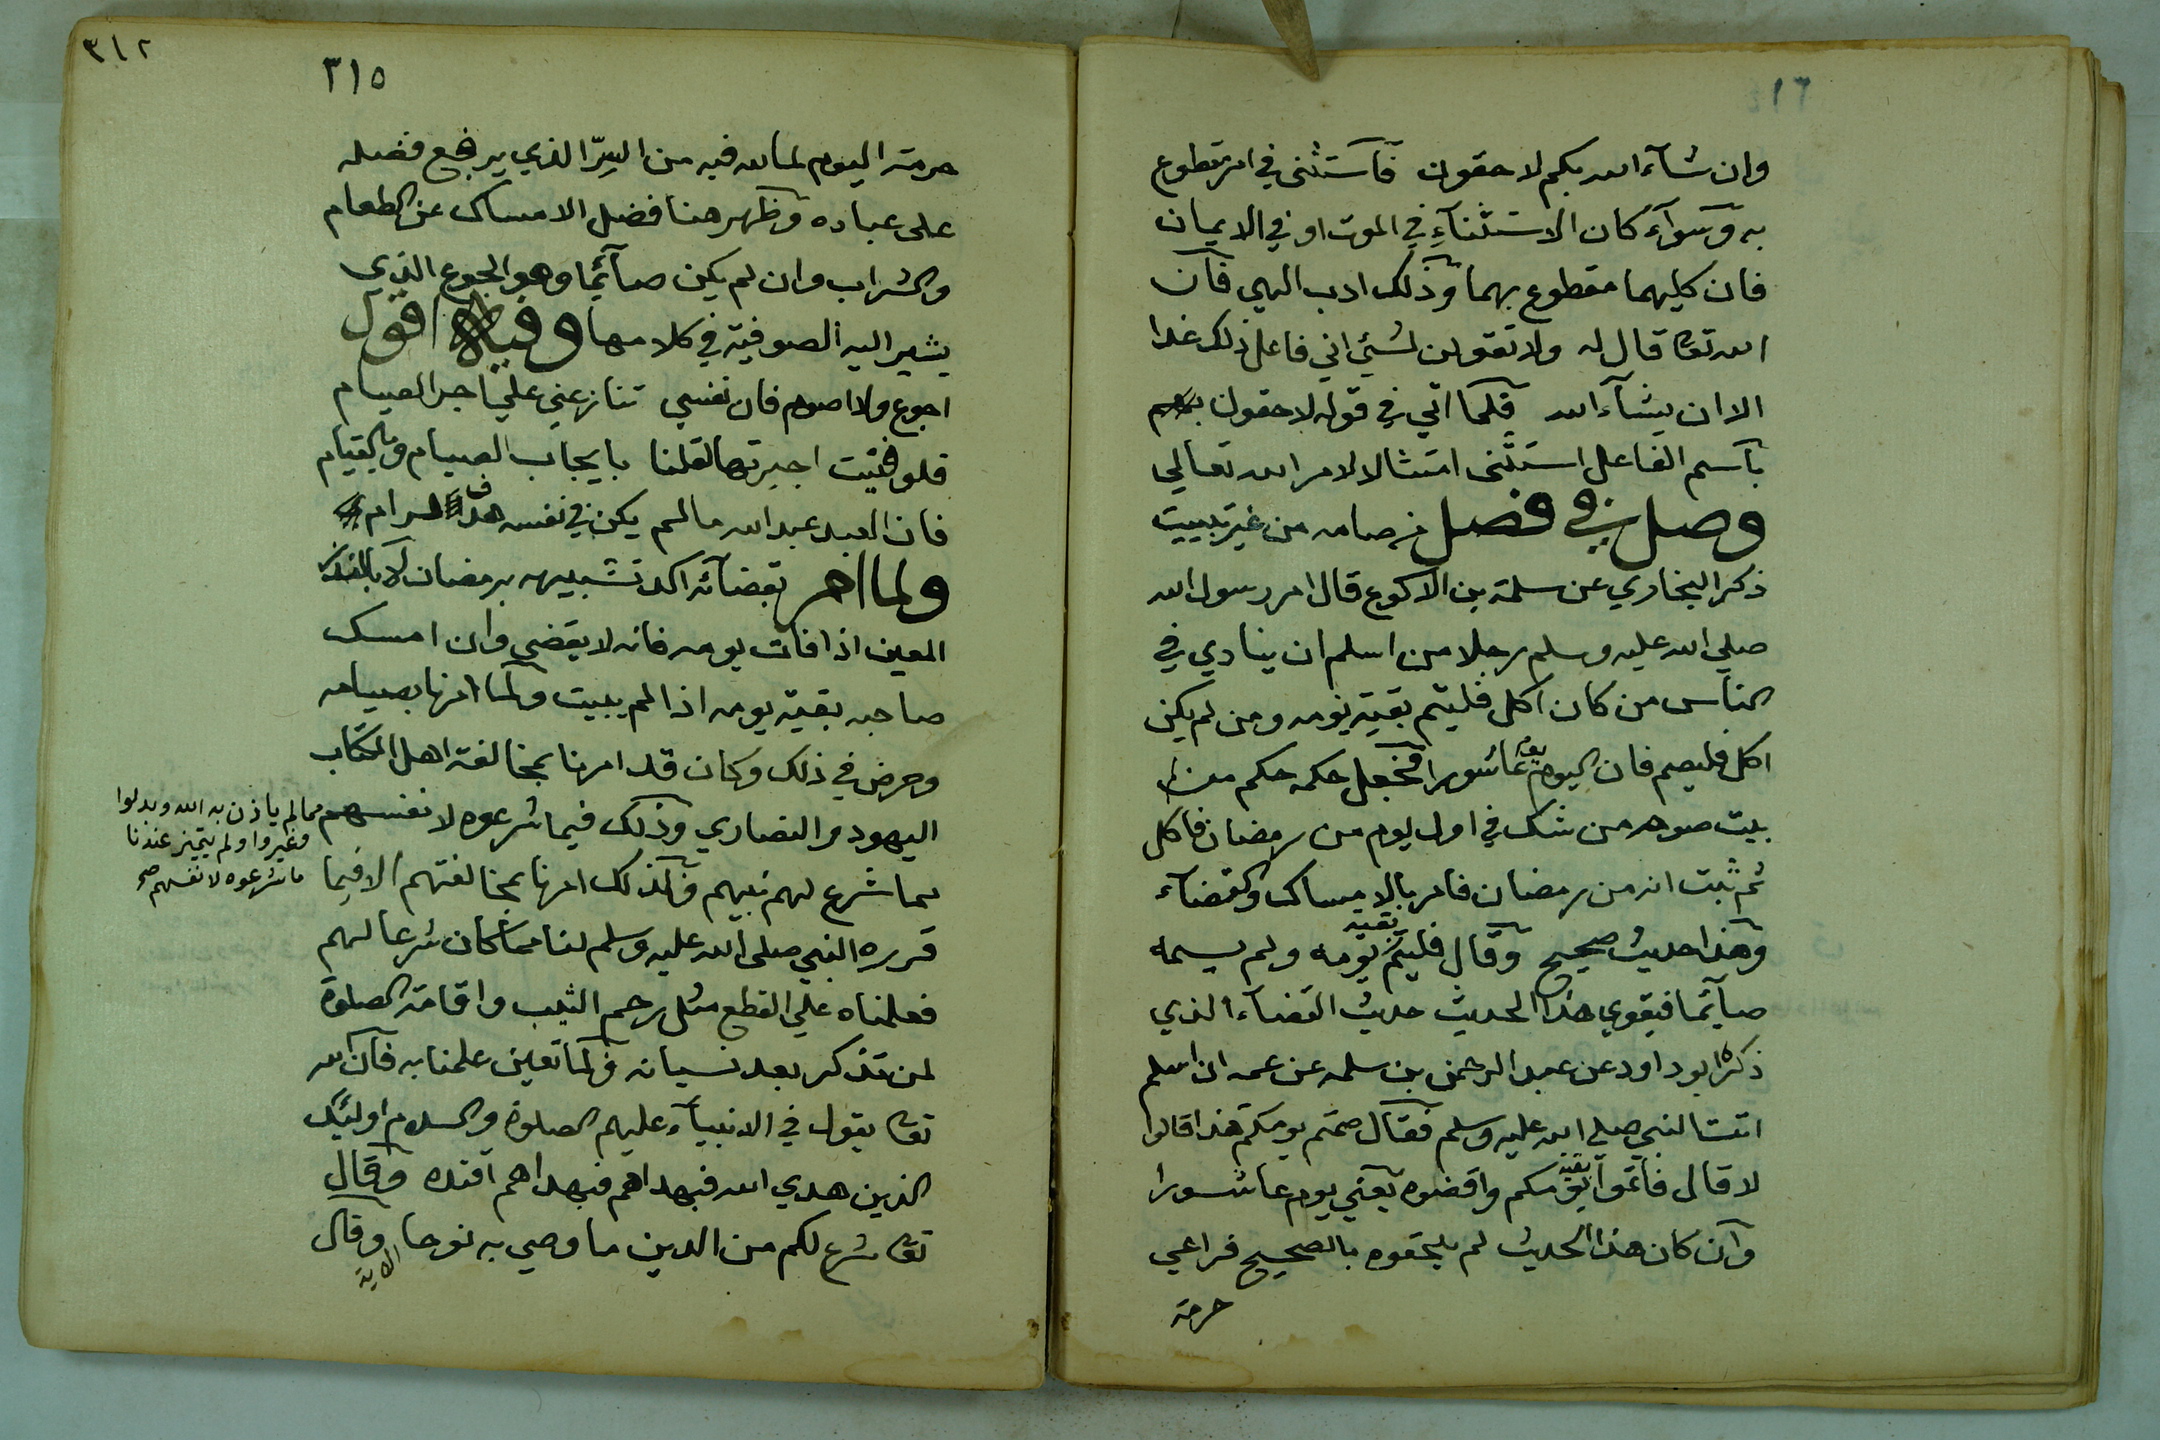 وان شآء الله بكم لاحقون فآستثنى في امر مقطوع
به وسوآء كان الاستثنآء في الموت او في الايمان
فان كليهما مقطوع بهما وذلك ادب الهي فان
الله تعا قال له ولا تقولن لشيء اني فاعل ذلك غدا
الا ان يشآء الله فلما اتي في قوله لاحقون
بآسم الفاعل استثنى امتثالا لامر الله تعالي
وصل في فضل من صامه من غير تبييت
ذكر البخاري عن سلمة بن الاكوع قال امر رسول الله
صلي الله عليه وسلم رجلا من اسلم ان ينادي في
الناس من كان اكل فليتم بقية يومه ومن لم يكن
اكل فليصم فان اليوم يوم عاشورا فجعل حكمه حكم من
بيت صومه من شك في اول يوم من رمضان فاكل
ثم ثبت انه من رمضان فامر بالامساك والقضآء
وهذا حديث صحيح وقال فليتم بقية يومه ولم يسمه
صآئما فيقوي هذا الحديث حديث القضآء الذي
ذكره ابو داود عن عبد الرحمن بن سلمه عن عمه ان اسلم
اتت النبي صلي الله عليه وسلم فقال صمتم يومكم هذا قالوا
لا قال فاتموا بقية يومكم واقضوه يعني يوم عاشورا
وان كان هذا الحديث لم يلحقوه بالصحيح فراعي
حرمة
٣١٢
٣١٥
حرمة اليوم لما لله فيه من السِرّ الذي يرفع فضله
على عباده وظهر هنا فضل الامساك عن الطعام
والشراب وان لم يكن صآئما وهو الجوع الذي
يشير اليه الصوفية في كلامها وفيه اقول
اجوع ولا اصوم فان نفسي تنازعني علي اجر الصيام
فلو فنيت اجيرتها لقلنا بايجاب الصيام وبالقيام
فان العبد عبد الله مالم يكن في نفسه هدف لرام
ولما امر بقضآئه اكد تشبيهه برمضان لا بالنذر
المعين اذا فات يومه فانه لا يقضي وان امسك
صاحبه بقية يومه اذا لم يبيت ولما امرنا بصيامه
وحرض في ذلك وكان قد امرنا بمخالفة اهل الكتاب
اليهود والنصاري وذلك فيما شرعوه لانفسهم
مما لم ياذن به الله وبدلوا
وغيروا ولم يتميز عندنا
ما شرعوه لانفسهم صح
مما شرع لهم نبيهم فلذلك امرنا بمخالفتهم الا فيما
قرره النبي صلى الله عليه وسلم لنا مما كان شرعا لهم
فعلمناه علي القطع مثل رجم الثيب واقامة الصلوة
لمن تذكر بعد نسيانه ولما تعين علمنا به فان الله
تعا يقول في الانبيآء عليهم الصلوة والسلام اولئك
الذين هدي الله فبهداهم فبهداهم اقتده وقال
تعا شرع لكم من الدين ما وصي به نوحا الاية وقال